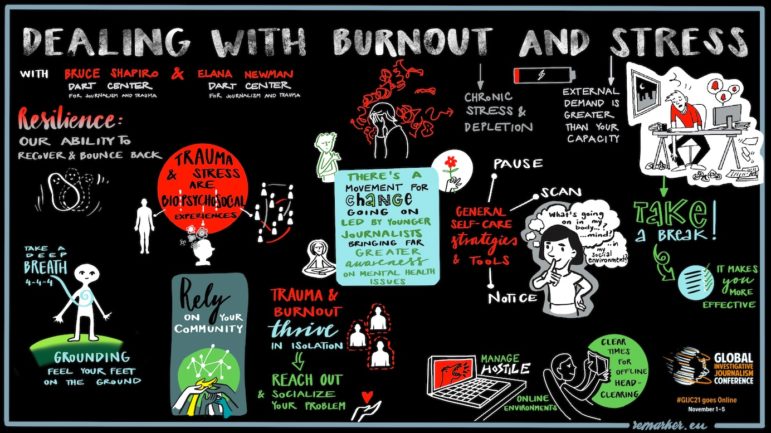 DEALING WITH BURNOUT AND STRESS
WITH BRUCE SHAPIRO & ELANA NEWMAN
DART CENTER
FOR JOURNALISM AND TRAUMA
DART CENTER
FOR JOURNALISM AND TRAUMA
Resilience:
OUR ABILITY TO
RECOVER & BOUNCE BACK
TRAUMA
& STRESS
ARE
BIOPSYCHOSOCIAL
EXPERIENCES
CHRONIC
STRESS &
DEPLETION
EXTERNAL
DEMAND IS
GREATER
THAN YOUR
CAPACITY
THERE'S A
MOVEMENT FOR
CHANGE
GOING ON
LED BY YOUNGER
JOURNALISTS
BRINGING FAR
GREATER
awareness
ON MENTAL HEALTH
ISSUES
PAUSE
SCAN
GENERAL
SELF-CARE
strategies
& TOOLS
NOTICE
What's going
on in my
body...?
...mind?
...in my
social
environment?
TAKE
a BREAK!
IT MAKES
you
MORE
EFFECTIVE
TAKE A
DEEP
BREATH
4-4-4
GROUNDING
FEEL YOUR FEET
ON THE GROUND
Rely
ON YOUR
COMMUNITY
TRAUMA &
BURNOUT
thrive
IN ISOLATION
REACH OUT
& SOCIALIZE
YOUR PROBLEM
MANAGE
HOSTILE
ONLINE
ENVIRONMENTS
CLEAR
TIMES FOR
OFFLINE
HEAD-
CLEARING
GLOBAL
INVESTIGATIVE
JOURNALISM
CONFERENCE
#GIJC21 goes Online
November 1-5
remarker.eu